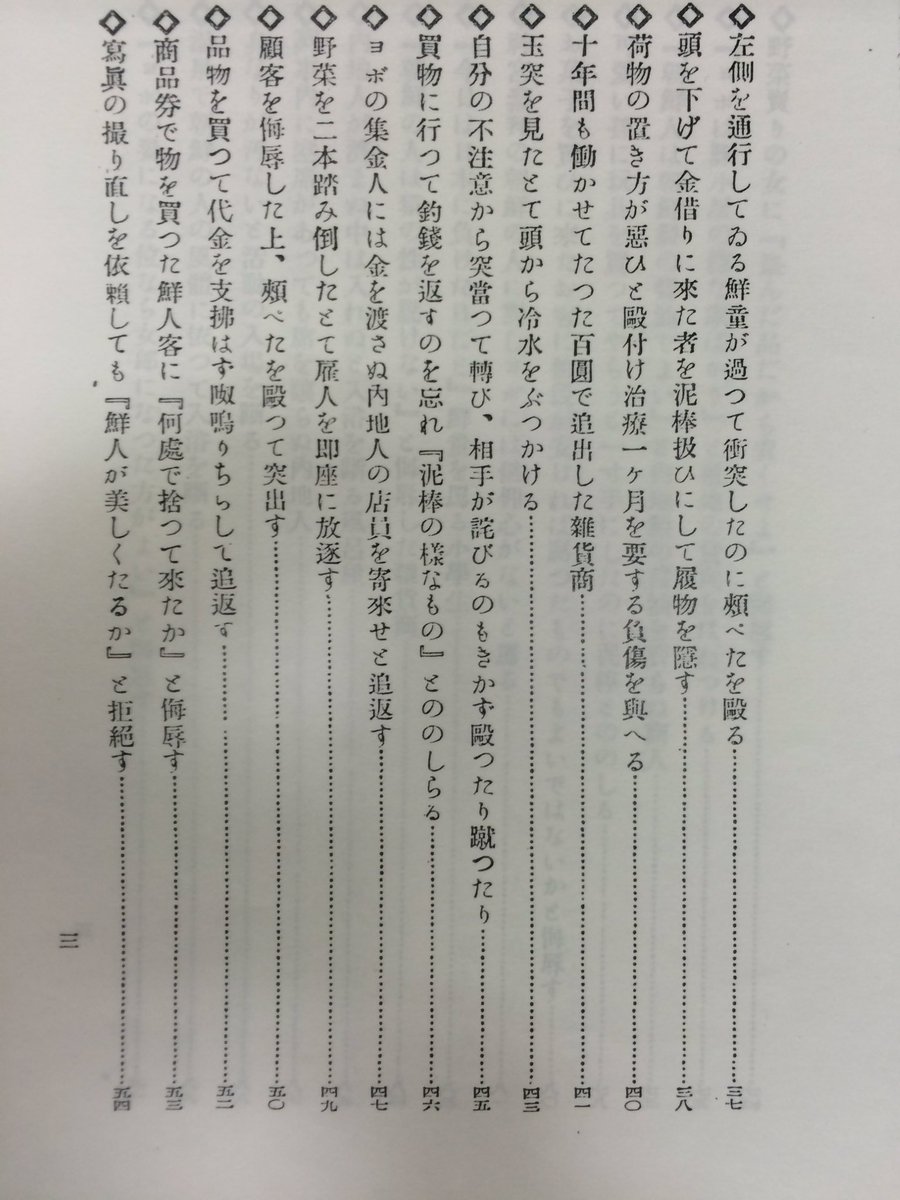 ◇左側を通行してゐる鮮童が過つて衝突したのに頰ぺたを毆る……三七
◇頭を下げて金借りに來た者を泥棒扱ひにして履物を隱す……三八
◇荷物の置き方が惡ひと毆付け治療一ケ月を要する負傷を與へる……四〇
◇十年間も働かせてたつた百圓で追出した雜貨商……四一
◇玉突を見たとて頭から冷水をぶつかける……四三
◇自分の不注意から突當つて轉び、相手が詫びるのもきかず毆つたり蹴つたり……四五
◇買物に行つて釣錢を返すのを忘れ『泥棒の樣なもの』とののしらる……四六
◇ヨボの集金人には金を渡さぬ內地人の店員を寄來せと追返す……四七
◇野菜を二本踏み倒したとて雇人を卽座に放逐す……四九
◇顧客を侮辱した上、頰ぺたを毆つて突出す……五〇
◇品物を買つて代金を支拂はず呶鳴りちらして追返す……五二
◇商品券で物を買つた鮮人客に『何處で捨つて來たか』と侮辱す……五三
◇寫眞の撮り直しを依賴しても『鮮人が美しくなるか』と拒絕す……五四
三